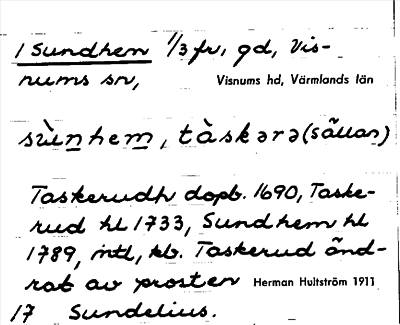 1 Sundhem 1/3 fr, gd, Vis-
nums sn, Visnums hd, Värmlands län
sùnhem, tàskərə (sällan)
Taskerudh dopb. 1690, Taske-
rud hl 1733, Sundhem hl
1789, mtl, kb. Taskerud änd-
rat av prosten Herman Hultström 1911
17 Sundelius.